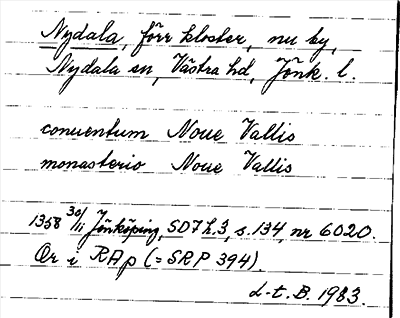 Nydala, förr kloster, nu by,
Nydala sn, Västra hd, Jönk. l.
conuentum Noue Vallis
monasterio Noue Vallis
1358 30/11 Jönköping, SD7 h.3, s.134, nr 6020.
Or i RAp (= SRP 394).
L-t. B. 1983.